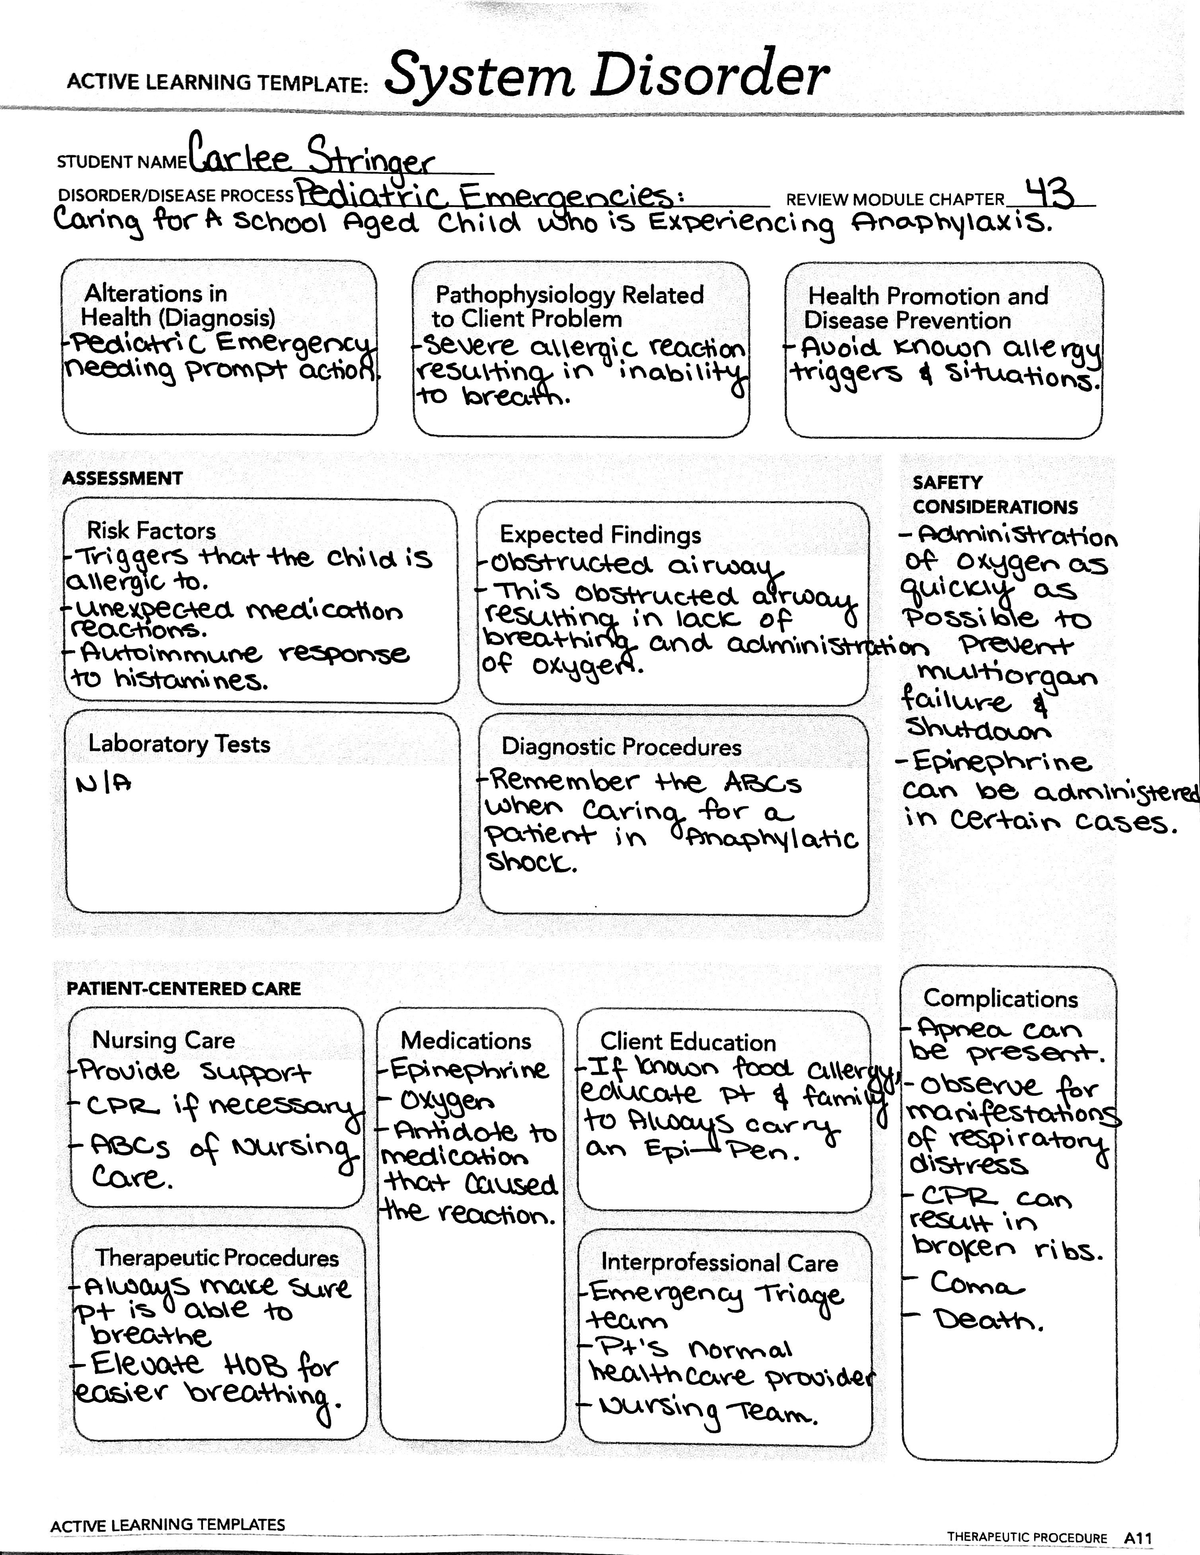 ACTIVE LEARNING TEMPLATE: System Disorder
STUDENT NAME Carlee Stringer
DISORDER/DISEASE PROCESS Pediatric Emergencies: REVIEW MODULE CHAPTER 43
Caring for A School Aged Child who is Experiencing Anaphylaxis.
Alterations in
Health (Diagnosis)
-Pediatric Emergency
needing prompt action.
Pathophysiology Related
to Client Problem
-Severe allergic reaction
resulting in inability
to breath.
Health Promotion and
Disease Prevention
- Avoid known allergy
triggers & situations.
ASSESSMENT
Risk Factors
-Triggers that the child is
allergic to.
-unexpected medication
reactions.
- Autoimmune response
to histamines.
Expected Findings
-Obstructed airway
- This obstructed airway
resulting in lack of
breathing and administration
of oxygen.
Laboratory Tests
N/A
Diagnostic Procedures
-Remember the ABCs
when caring for a
patient in Anaphylatic
shock.
SAFETY
CONSIDERATIONS
- Administration
of oxygen as
quickly as
possible to
prevent
multiorgan
failure &
shutdown
- Epinephrine
can be administered
in certain cases.
PATIENT-CENTERED CARE
Nursing Care
-Provide support
- CPR if necessary
- ABCs of Nursing
Care.
Medications
-Epinephrine
- Oxygen
- Antidote to
medication
that caused
the reaction.
Client Education
-If known food allergy,
educate pt & family
to Always carry
an Epi-Pen.
Therapeutic Procedures
-Always make sure
pt is able to
breathe
- Elevate HOB for
easier breathing.
Interprofessional Care
-Emergency Triage
team
-Pt's normal
healthcare provider
- Nursing Team.
Complications
- Apnea can
be present.
- Observe for
manifestations
of respiratory
distress
- CPR can
result in
broken ribs.
- Coma
- Death.
ACTIVE LEARNING TEMPLATES
THERAPEUTIC PROCEDURE A11